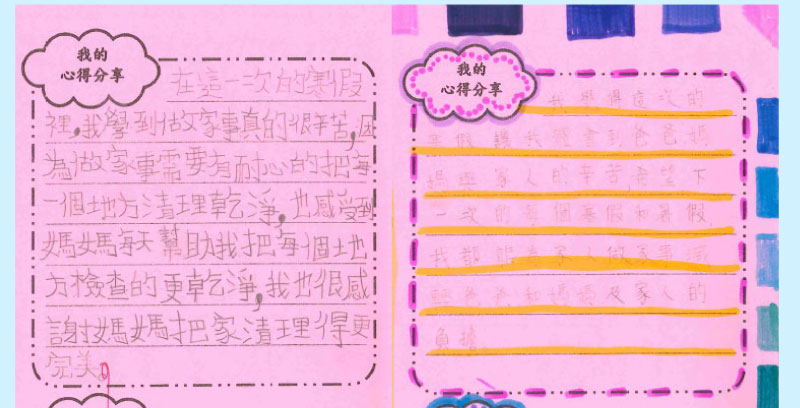 我的
心得分享
在這一次的寒假
裡,我學到做家事真的很辛苦,因
為做家事需要有耐心的把每
一個地方清理乾淨,也感受到
媽媽每天幫助我把每個地
方檢查的更乾淨,我也很感
謝媽媽把家清理得更
完美。
我的
心得分享
我覺得這次的
寒假讓我體會到爸爸媽
媽與家人的辛苦希望下
一次的每個寒假和暑假
我都能為家人做家事減
輕爸爸和媽媽及家人的
負擔